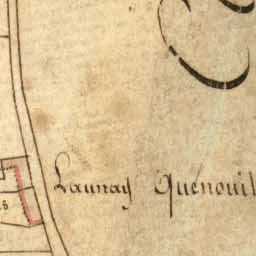 Launay Quenouil